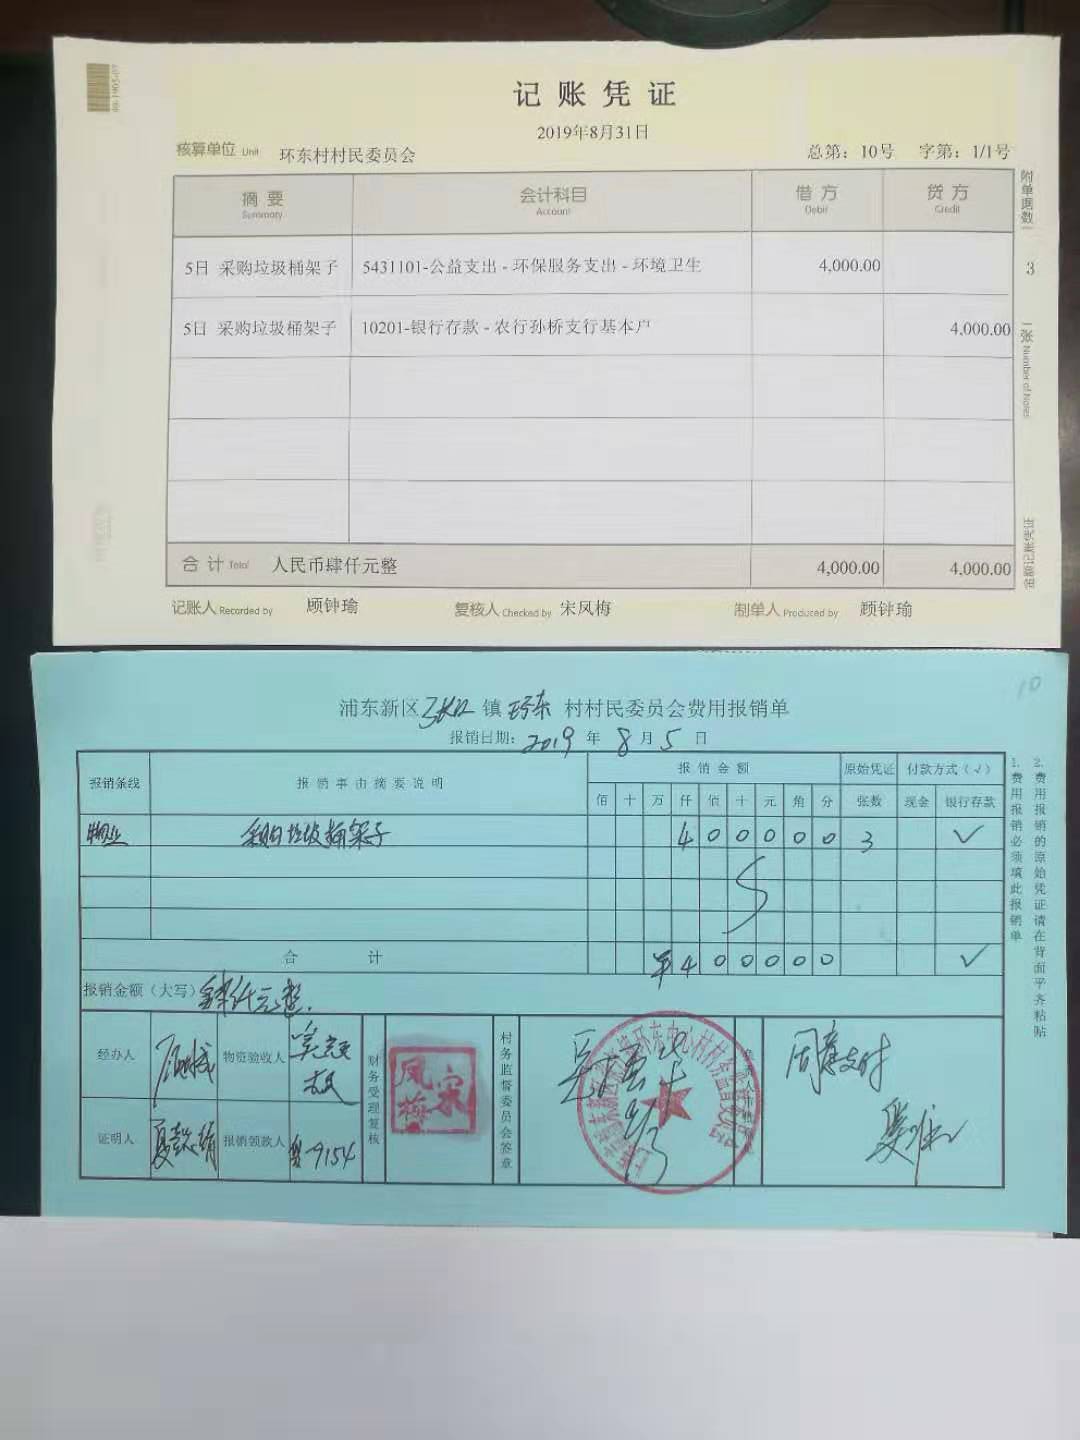 记账凭证
2019年8月31日
核算单位 Unit 环东村村民委员会 总第：10号 字第：1/1号
摘要 会计科目 借方 贷方
Summary Account Debit Credit
5日 采购垃圾桶架子 5431101-公益支出 - 环保服务支出 - 环境卫生 4,000.00
5日 采购垃圾桶架子 10201-银行存款 - 农行孙桥支行基本户 4,000.00
合计 Total 人民币肆仟元整 4,000.00 4,000.00
记账人 Recorded by 顾钟瑜 复核人 Checked by 宋凤梅 制单人 Produced by 顾钟瑜
附单据数 3 张 Number of Notes
金额记账凭证
10
浦东新区 张江 镇 环东 村村民委员会费用报销单
报销日期：2019 年 8 月 5 日
报销条线 报销事由摘要说明 报销金额 原始凭证 付款方式（√）
佰 十 万 仟 佰 十 元 角 分 张数 现金 银行存款
物业 采购垃圾桶架子 4 0 0 0 0 0 3 √
合计 ¥ 4 0 0 0 0 0 √
报销金额（大写） 肆仟元整.
经办人 物资验收人 财务受理复核 宋凤梅 村务监督委员会签章 同意支付
证明人 报销领款人 9154
1.费用报销必须填此报销单
2.费用报销的原始凭证请在背面平齐粘贴